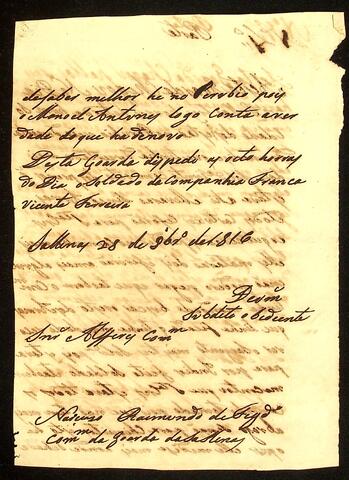 de saber melhor he no Perobio pois
o Manoel Antunes logo Conta aver
dade do que ha de novo
Desta Goarda dispedi as octo horas
do Dia o Soldado de Companhia Franca
Vicente Ferreira
Sallinas 28 de 9bro de 1816
De Vm
Subdito obediente
Snr Alfferes Comm
Narcizo Raimundo de Figd
Comm da Goarda das Sallinas